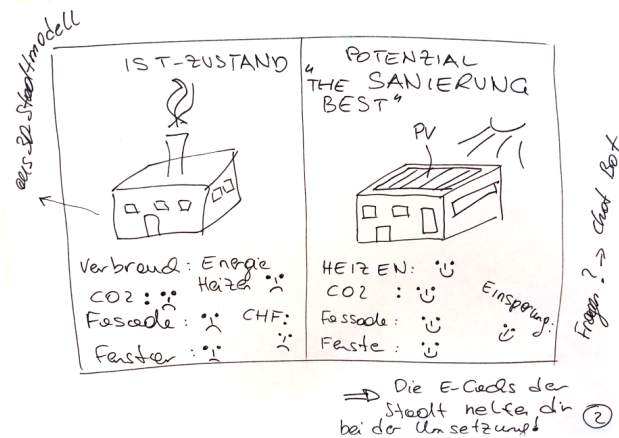 als 3D Stadtmodell
IST-ZUSTAND
Verbrauch: Energie
Heizen
CO2 :
CHF:
Fassade :
Fenster :
POTENZIAL
"THE SANIERUNG
BEST"
PV
HEIZEN:
CO2 :
Einsparung:
Fassade :
Fenste :
Fragen? → Chat Bot
⇒ Die E-Coachs der
Stadt helfen dir
bei der Umsetzung!
2